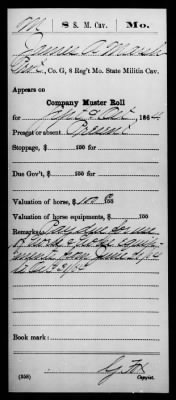 M 8 S. M. Cav. Mo.
James A. Marsh
Pvt., Co. G, 8 Reg't Mo. State Militia Cav.
Appears on
Company Muster Roll
for Sept & Oct, 1864
Present or absent Present
Stoppage, $ 100 for
Due Gov't, $ 100 for
Valuation of horse, $ 100
Valuation of horse equipments, $ 100
Remarks: Pay due for use
of horse & horse equip-
ments from June 30/64
to Oct 31/64
Book mark:
(358) Copyist.